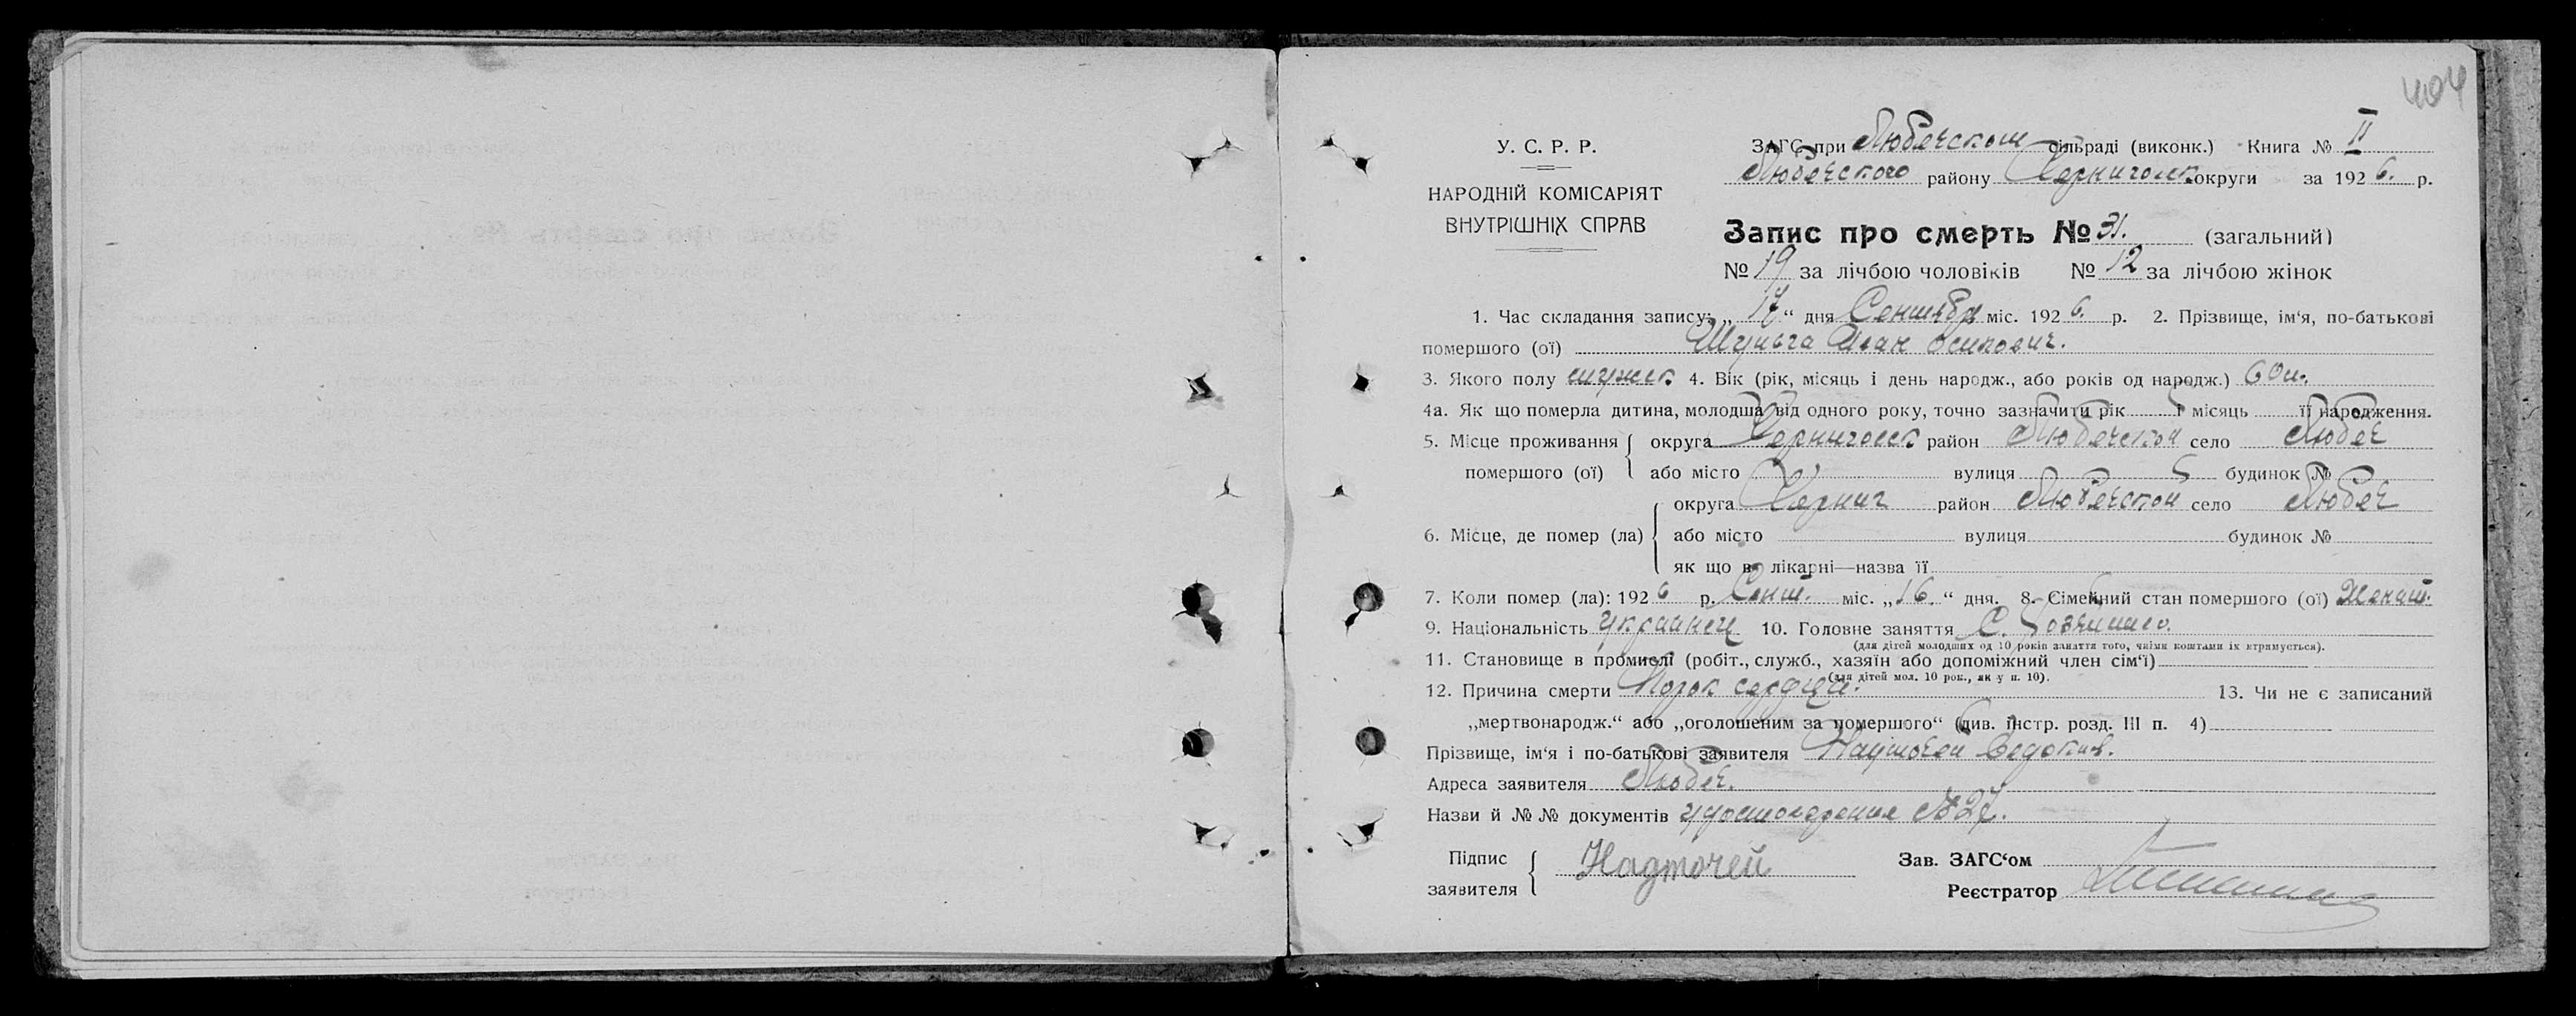 404
У. С. Р. Р.
НАРОДНІЙ КОМІСАРІЯТ
ВНУТРІШНІХ СПРАВ
ЗАГС при Любечском сільраді (виконк.) Книга № II
Любечского району Черниговск округи за 1926. р.
Запис про смерть № 31. (загальний)
№ 19 за лічбою чоловіків № 12 за лічбою жінок
1. Час складання запису: „17“ дня Сентября міс. 1926. р. 2. Прізвище, ім‘я, по-батькові
помершого (ої) Шульга Иван Осипович.
3. Якого полу мужск 4. Вік (рік, місяць і день народж., або років од народж.) 60 л.
4а. Як що померла дитина, молодша від одного року, точно зазначити рік і місяць її народження.
5. Місце проживання помершого (ої) округа Черниговск район Любечский село Любеч
або місто вулиця будинок №
6. Місце, де помер (ла) округа Черниг район Любечский село Любеч
або місто вулиця будинок №
як що в лікарні—назва її
7. Коли помер (ла): 1926 р. Сент. міс. „16.“ дня. 8. Сімейний стан помершого (ої) Женат.
9. Національність Украинец 10. Головне заняття С.
(для дітей молодших од 10 років заняття того, чиїми коштами їх втримується).
11. Становище в промислі (робіт., служб., хазяїн або допоміжний член сім‘ї)
(для дітей мол. 10 рок., як у п. 10).
12. Причина смерти Порок сердца. 13. Чи не є записаний
„мертвонародж.“ або „оголошеним за помершого“ (див. інстр. розд. III п. 4)
Прізвище, ім‘я і по-батькові заявителя Надточей
Адреса заявителя Любеч.
Назви й №№ документів удостоверение №27.
Підпис заявителя Надточей
Зав. ЗАГС‘ом
Реєстратор